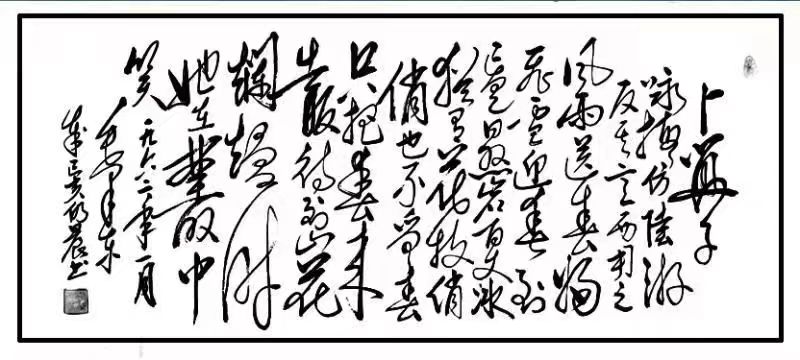 卜算子
咏梅仿陆游
反其意而用之
风雨送春归
飞雪迎春到
已是悬岩百丈冰
犹有花枝俏
俏也不争春
只把春来
报待到山花
烂漫时
她在丛中
笑 一九六二年一月
毛泽东
书